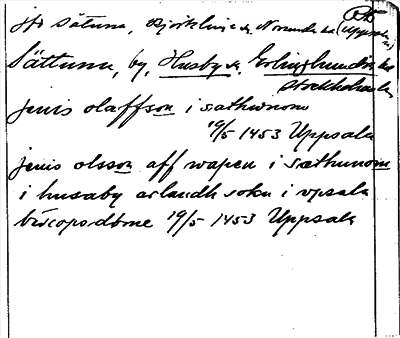 jfr Sätuna, Björklinge sn, Norunda hd (Uppsala)
RA
Sättuna, by, Husby sn, Erlinghundra hd
Stockholms län
jenis olaffson i sathwnom
19/5 1453 Uppsala
jenis olsson aff wapen i sæthunom
i husaby arlandh sokn i vpsala
biscopsdöme 19/5 1453 Uppsala